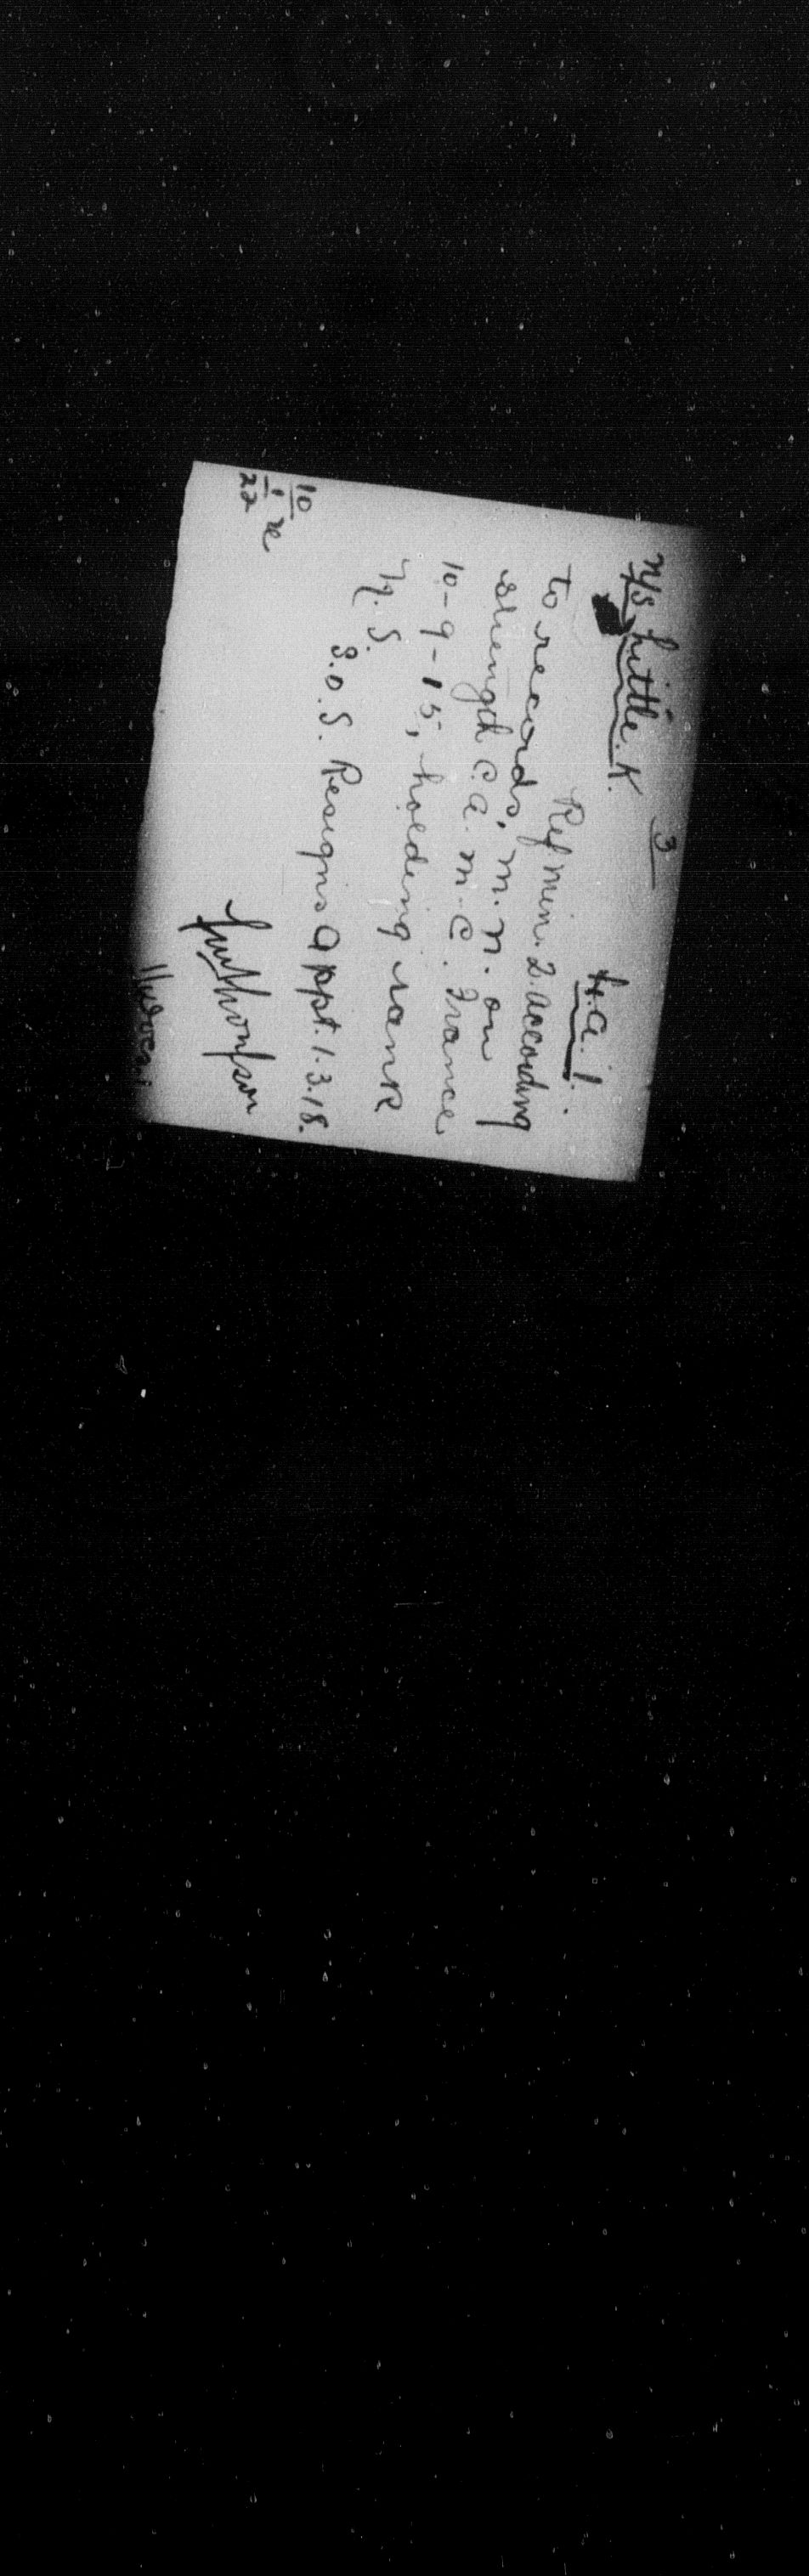 3
N/S Little. K. H.A.1.
Ref min. 2. according
to records, m. n. on
strength C.A.M.C. France
10-9-15, holding rank
N.S.
S.O.S. Resigns Appt. 1.3.18.
10
1
22